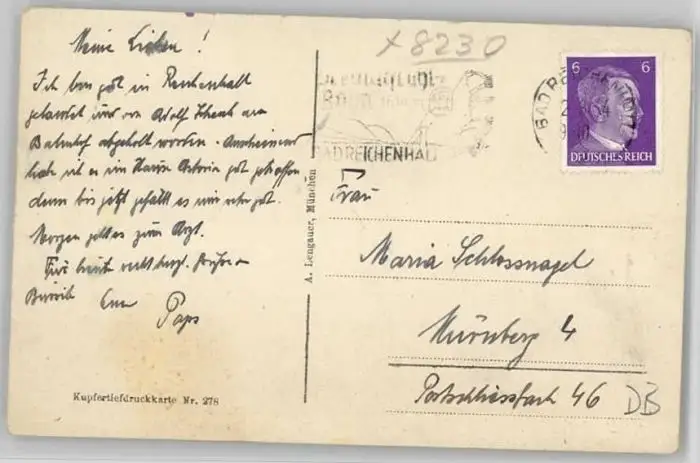 Meine Lieben!
Ich bin gut in Reichenhall
gelandet und von Adolf Schenk am
Bahnhof abgeholt worden. Anscheinend
hab ich es im Hause Astoria gut getroffen
denn bis jetzt gefällt es mir sehr gut.
Morgen geht es zum Arzt.
Für heute recht herzl. Grüße u.
Bussi Euer
Paps
Kupfertiefdruckkarte Nr. 278
A. Lengauer, München
x 8230
BAD REICHENHALL
BAD REICHENHALL
6 6
DEUTSCHES REICH
Frau
Maria Schlossnagel
Nürnberg 4
Postschliessfach 46
DB